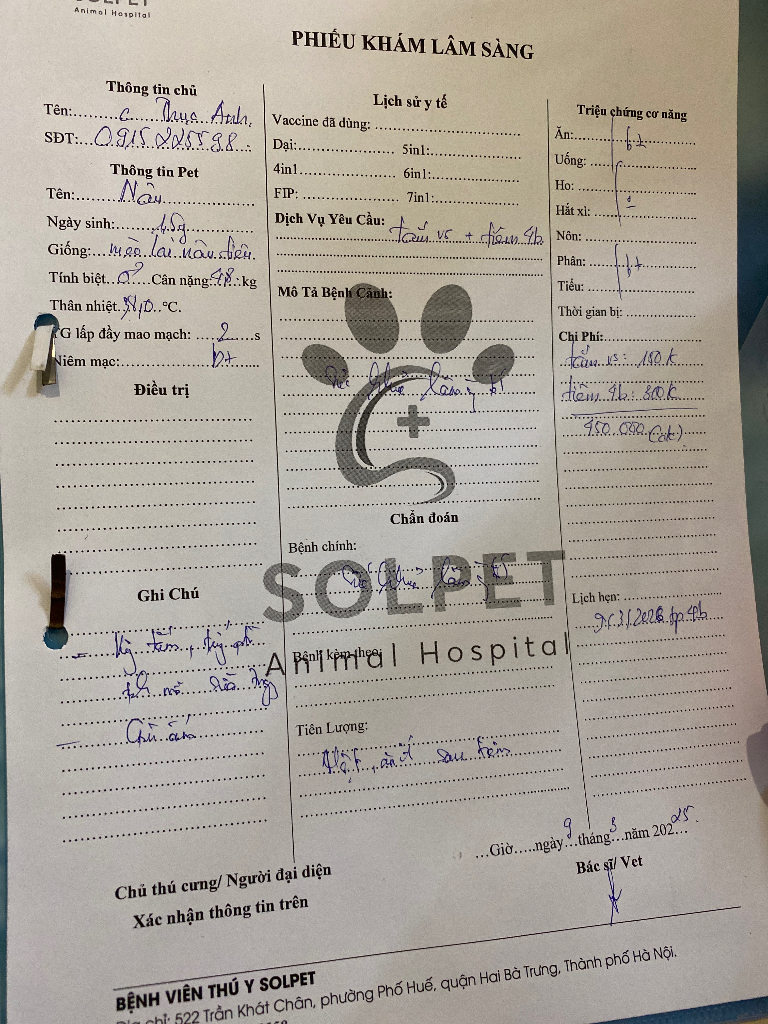 Animal Hospital
PHIẾU KHÁM LÂM SÀNG
Thông tin chủ
Tên: c Thục Anh
SĐT: 0915225598
Thông tin Pet
Tên: Nâu
Ngày sinh:
Giống: mèo lai
Tính biệt ♂ Cân nặng: 4,8 kg
Thân nhiệt °C.
TG lấp đầy mao mạch: 2 s
Niêm mạc: bt
Điều trị
Ghi Chú
- Kỵ tắm,
Lịch sử y tế
Vaccine đã dùng:
Dại: 5in1:
4in1 6in1:
FIP: 7in1:
Dịch Vụ Yêu Cầu: tắm vs + tiêm 4b
Mô Tả Bệnh Cảnh:
Sức khỏe lâm sàng bt
SOLPET
Animal Hospital
Chẩn đoán
Bệnh chính:
Sức khỏe lâm sàng bt
Bệnh kèm theo:
Tiên Lượng:
sau tiêm
Triệu chứng cơ năng
Ăn: bt
Uống:
Ho:
Hắt xì:
Nôn:
Phân: bt
Tiểu:
Thời gian bị:
Chi Phí:
tắm vs: 150k
tiêm 4b: 300k
450.000 (ck)
Lịch hẹn:
9/3/2026 4b
Giờ ngày 9 tháng 3 năm 2025
Chủ thú cưng/ Người đại diện
Xác nhận thông tin trên
Bác sĩ/ Vet
BỆNH VIỆN THÚ Y SOLPET
Địa chỉ: 522 Trần Khát Chân, phường Phố Huế, quận Hai Bà Trưng, Thành phố Hà Nội.